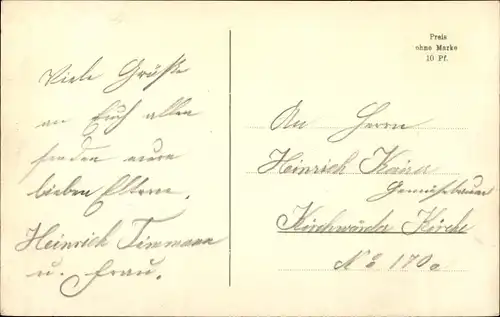 Viele Grüße
an Euch allen
senden eure
lieben Eltern.
Heinrich Timmann
u. Frau.
Preis
ohne Marke
10 Pf.
An Herrn
Heinrich
Gemüsebauer
Kirchwärder Kirche
No 170a